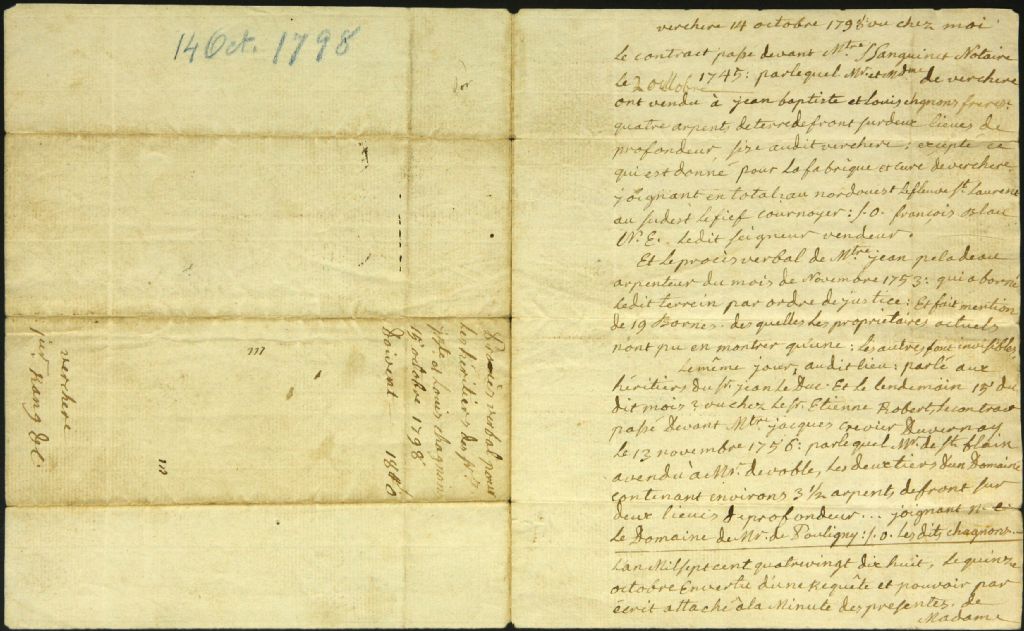 14 Oct. 1798
verchere
1ier Rang &c.
Procès verbal pour
Les héritiers des srs.
J. Bte. et Louis chagnon
15 octobre 1798
Doivent
verchere 14 octobre 1798 vu chez moi
Le contract passé devant Mtre. Sanguinet Notaire
le 20 octobre 1745: par lequel Mr. et Mdme de verchere
ont vendu à jean baptiste et Louis chagnons freres:
quatre arpents de terre de front sur deux lieues de
profondeur, size audit verchere; excepté ce
qui est donné pour La fabrique et cure de verchere,
joignant en total: au nordouest Le fleuve St. Laurent
au sudest Le fief cournoyer: S.O. françois Blau
N.E. Ledit seigneur vendeur.
Et Le procès verbal de Mtre jean peladeau
arpenteur du mois de Novembre 1753: qui a borné
Ledit terrein par ordre de justice: Et fait mention
de 19 Bornes. des quelles Les propriétaires actuels
n'ont pu en montrer qu'une: les autres sont invisibles,
Le même jour, audit lieu: parlé aux
héritiers du sr. jean Le Duc. Et le lendemain 15 du
dit mois: vu chez Le sr. Etienne Robert, Le contract
passé Devant Mtre jacques crevier Duvernay
Le 13 novembre 1756: par lequel Mr. de St. blain
a vendu à Mr. de, Les deux tiers d'un Domaine
contenant environs 3 1/2 arpents de front sur
deux lieues de profondeur... joignant N. E.
Le Domaine de Mr. de Pouligny: S.O. Les dits chagnons.
L'an Mil sept cent quatrevingt dix huit, Le quinze
octobre En vertu d'une Requête et pouvoir par
écrit attaché à la Minute des presentes. de
Madame